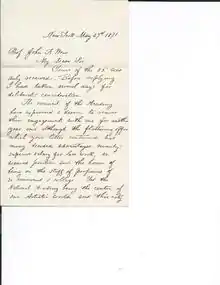 New York May 27th 1871
Prof. John F. Weir
My Dear Sir
Yours of the 25th was
duly received. Before replying
I have taken several days for
deliberate consideration.
The council of the Academy
have expressed a desire to renew
their engagement with me for another
year and although the flattering offer
which your letter contained has
many decided advantages, namely:
increased salary for less work, an
assured position and the honor of
being on the staff of professors of
so renowned a college. Yet the
National Academy being the centre of
our Artistic world and this city